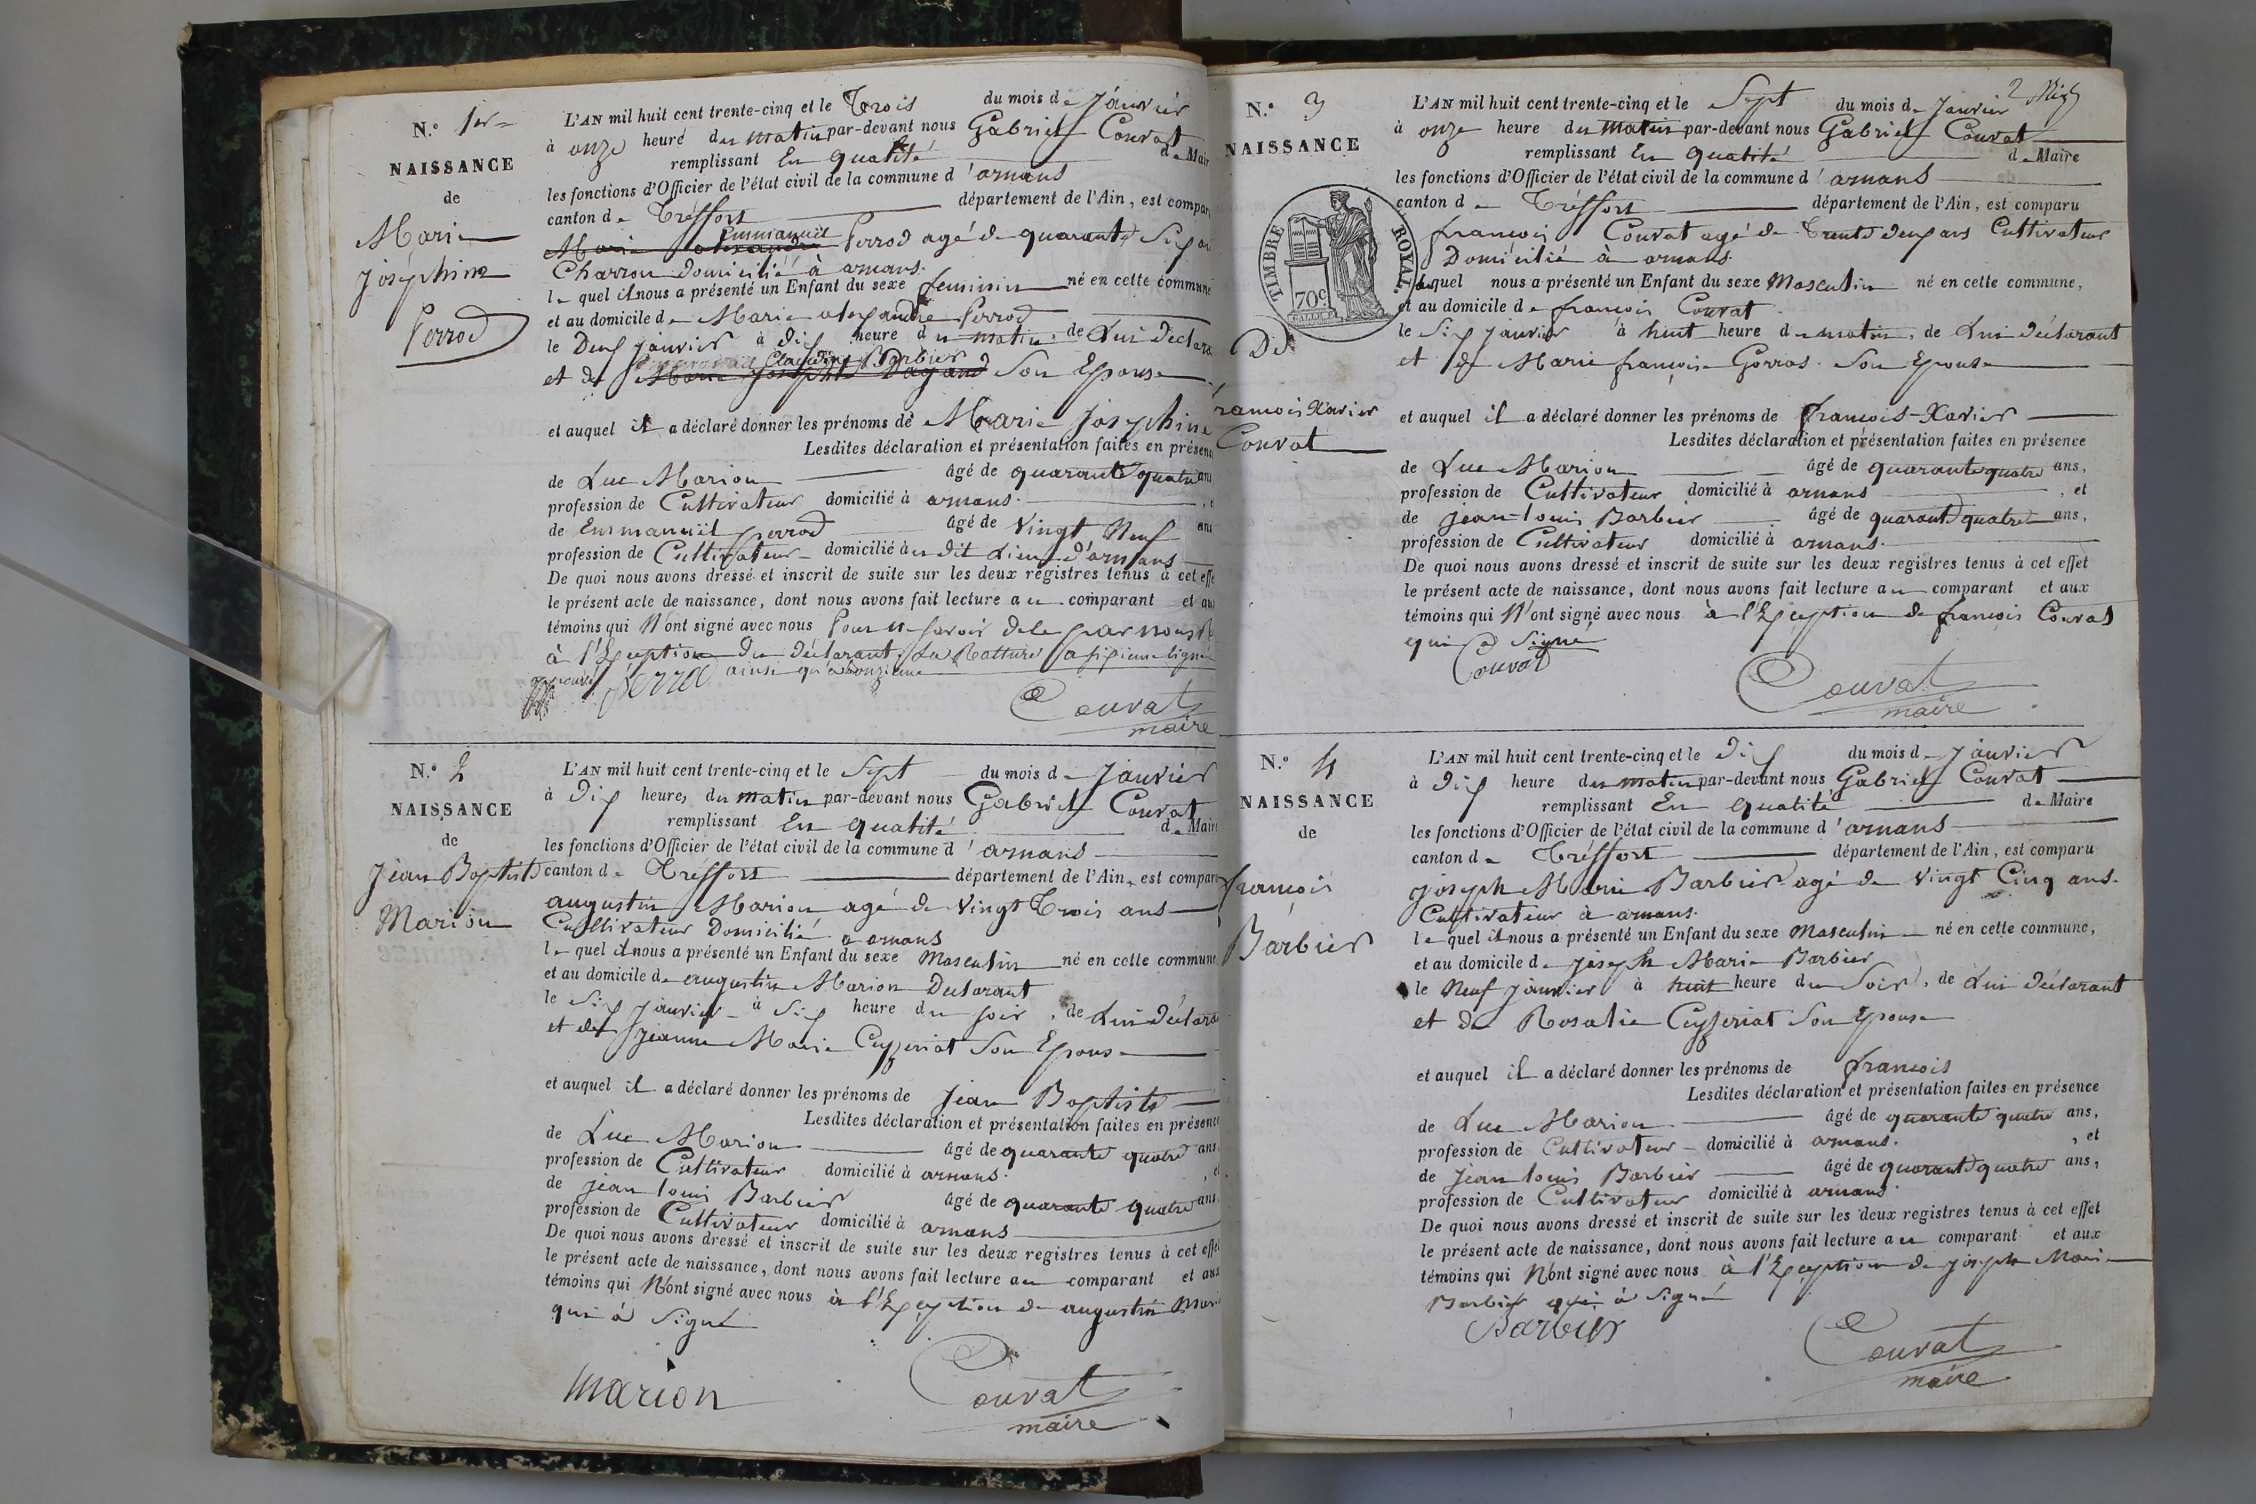 N.º 1er
NAISSANCE
de
Marie
Joséphine
Perrod
L'AN mil huit cent trente-cinq et le Trois du mois de Janvier
à onze heure du matin par-devant nous Gabriel Couvat
remplissant En qualité de Mair
les fonctions d'Officier de l'état civil de la commune d'arnans
canton de Tréffort département de l'Ain, est compar
Emmanuel
Marie alexandre Perrod agé de quarante
Charron domicilié à arnans.
le quel il nous a présenté un Enfant du sexe feminin né en cette commune
et au domicile de Marie alexandre Perrod
le Deux Janvier à dix heure du matin, de Lui Déclara
Claudine Barbier
et de Marie Josephte Dagand Son Epouse
et auquel il a déclaré donner les prénoms de Marie Josephine
Lesdites déclaration et présentation faites en présenc
de Luc Marion âgé de quarante quatre ans
profession de Cultivateur domicilié à arnans.
de Emmanuel perrod âgé de Vingt Neuf ans
profession de Cultivateur domicilié au dit Lieu d'arnans
De quoi nous avons dressé et inscrit de suite sur les deux registres tenus à cet effe
le présent acte de naissance, dont nous avons fait lecture au comparant et au
témoins qui N'ont signé avec nous Pour ne Savoir de le par nous
à l'Exception du déclarant. La Ratture a sixieme ligne
approuvé perrod ainsi qu'a onzieme
Couvat
maire
N.º 2
NAISSANCE
de
Jean Baptiste
Marion
L'AN mil huit cent trente-cinq et le Sept du mois de Janvier
à Dix heures du matin par-devant nous Gabriel Couvat
remplissant En qualité de Maire
les fonctions d'Officier de l'état civil de la commune d'arnans
canton de Tréffort département de l'Ain, est comparu
augustin Marion agé de Vingt Trois ans
Cultivateur Domicilié a arnans
le quel il nous a présenté un Enfant du sexe Masculin né en cette commune
et au domicile de augustin Marion Declarant
le Six Janvier à Six heure du soir, de Lui Déclara
et de Jeanne Marie Cuyzeriat Son Epouse
et auquel il a déclaré donner les prénoms de Jean Baptiste
Lesdites déclaration et présentation faites en présence
de Luc Marion âgé de quarante quatre ans
profession de Cultivateur domicilié à arnans.
de jean louis Barbier âgé de quarante quatre ans
profession de Cultivateur domicilié à arnans
De quoi nous avons dressé et inscrit de suite sur les deux registres tenus à cet effet
le présent acte de naissance, dont nous avons fait lecture au comparant et aux
témoins qui N'ont signé avec nous à l'Exception de augustin Mari
qui à Signé
Marion
Couvat
maire
2
N.º 3
NAISSANCE
TIMBRE ROYAL.
70c
De
francois Xavier
Couvat
L'AN mil huit cent trente-cinq et le Sept du mois de Janvier
à onze heure du matin par-devant nous Gabriel Couvat
remplissant En qualité de Maire
les fonctions d'Officier de l'état civil de la commune d'arnans
canton de Tréffort département de l'Ain, est comparu
francois Couvat agé de Trente deux ans Cultivateur
Domicilié à arnans.
lequel nous a présenté un Enfant du sexe Masculin né en cette commune,
et au domicile de francois Couvat
le Six Janvier à huit heure du matin, de Lui déclarant
et de Marie françoise Gorras Son Epouse
et auquel il a déclaré donner les prénoms de francois-Xavier
Lesdites déclaration et présentation faites en présence
de Luc Marion âgé de quarante quatre ans,
profession de Cultivateur domicilié à arnans, et
de jean-louis Barbier âgé de quarante quatre ans,
profession de Cultivateur domicilié à arnans.
De quoi nous avons dressé et inscrit de suite sur les deux registres tenus à cet effet
le présent acte de naissance, dont nous avons fait lecture au comparant et aux
témoins qui N'ont signé avec nous à l'Exception de francois Couvat
qui a Signé
Couvat
Couvat
maire
N.º 4
NAISSANCE
de
francois
Barbier
L'AN mil huit cent trente-cinq et le Dix du mois de Janvier
à Dix heure du matin par-devant nous Gabriel Couvat
remplissant En qualité de Maire
les fonctions d'Officier de l'état civil de la commune d'arnans
canton de Tréffort département de l'Ain, est comparu
joseph Marie Barbier agé de Vingt Cinq ans.
Cultivateur à arnans.
le quel il nous a présenté un Enfant du sexe Masculin né en cette commune,
et au domicile de joseph Marie Barbier
le Neuf Janvier à huit heure du Soir, de Lui déclarant
et de Rosalie Cuyzeriat Son Epouse
et auquel il a déclaré donner les prénoms de francois
Lesdites déclaration et présentation faites en présence
de Luc Marion âgé de quarante quatre ans,
profession de Cultivateur domicilié à arnans., et
de Jean louis Barbier âgé de quarante quatre ans,
profession de Cultivateur domicilié à arnans.
De quoi nous avons dressé et inscrit de suite sur les deux registres tenus à cet effet
le présent acte de naissance, dont nous avons fait lecture au comparant et aux
témoins qui N'ont signé avec nous à l'Exception de joseph Marie
Barbier qui à Signé
Barbier
Couvat
maire